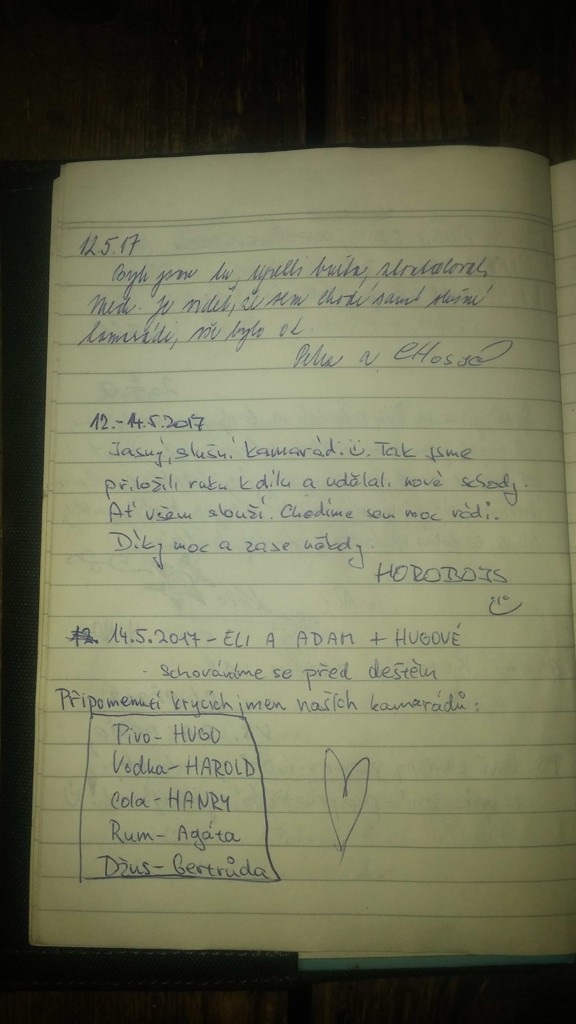 12.5.17
Byli jsme tu, vypili buřta, zkontrolovali
Med. Je vidět, že sem chodí samí slušní
kamarádi, vše bylo ok.
a
12.-14.5.2017
Jasný, slušní kamarádi. Tak jsme
přiložili ruku k dílu a udělali nové schody.
Ať všem slouží. Chodíme sem moc rádi.
Díky moc a zase někdy.
HOROBOJS
14.5.2017 - ELI A ADAM + HUGOVÉ
- Schováváme se před deštěm
Připomenutí krycích jmen našich kamarádů:
Pivo - HUGO
Vodka - HAROLD
Cola - HANRY
Rum - Agáta
Džus - Gertrůda